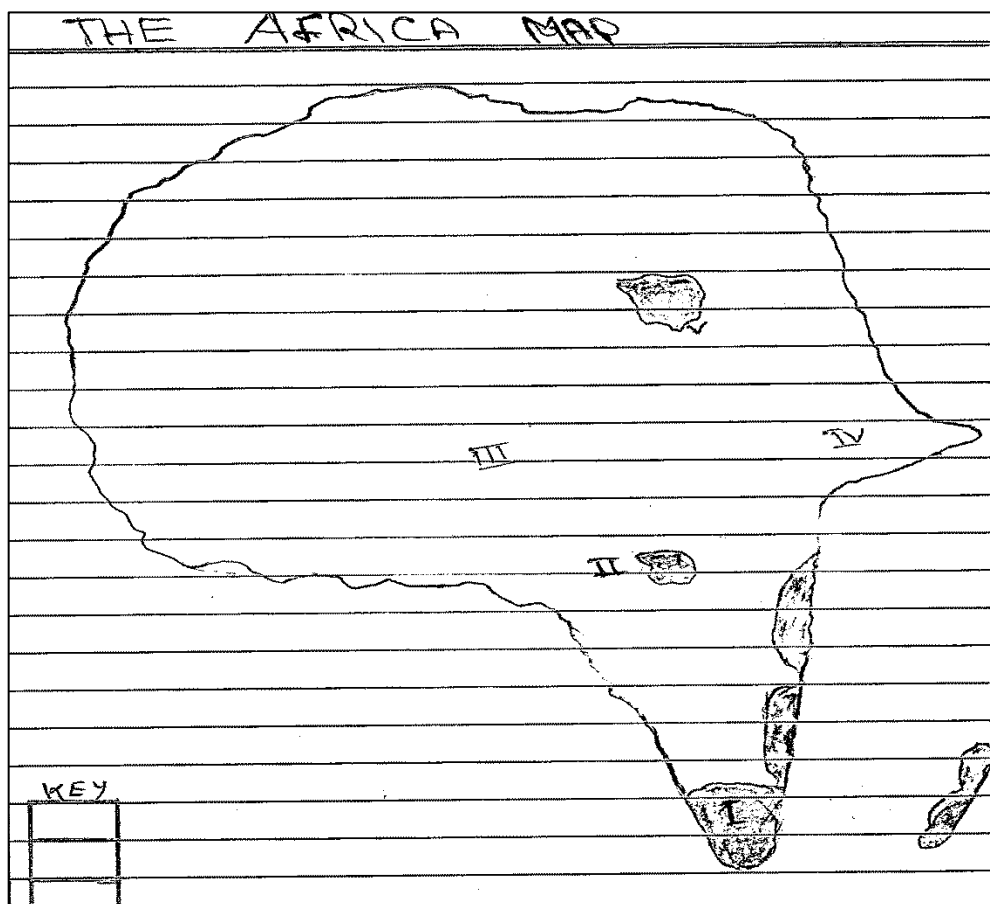 THE AFRICA MAP
IV
III
II
KEY
I